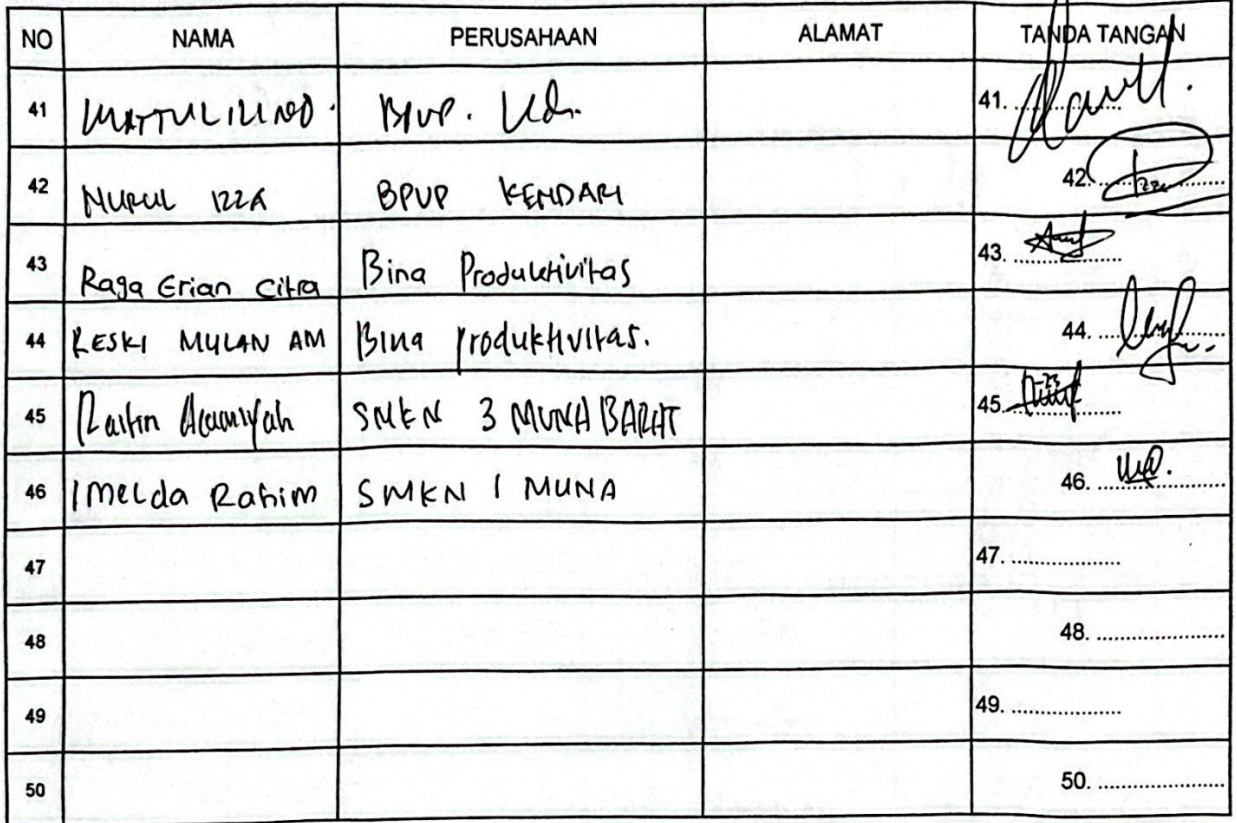 NO NAMA PERUSAHAAN ALAMAT TANDA TANGAN
41 BPVP. Kdi. 41.
42 NURUL IZZA BPVP KENDARI 42. Izza
43 Raga Erian Citra Bina Produktivitas 43.
44 RESKI MULAN AM Bina Produktivitas. 44.
45 SMKN 3 MUNA BARAT 45.
46 Imelda Rahim SMKN 1 MUNA 46.
47 47.
48 48.
49 49.
50 50.